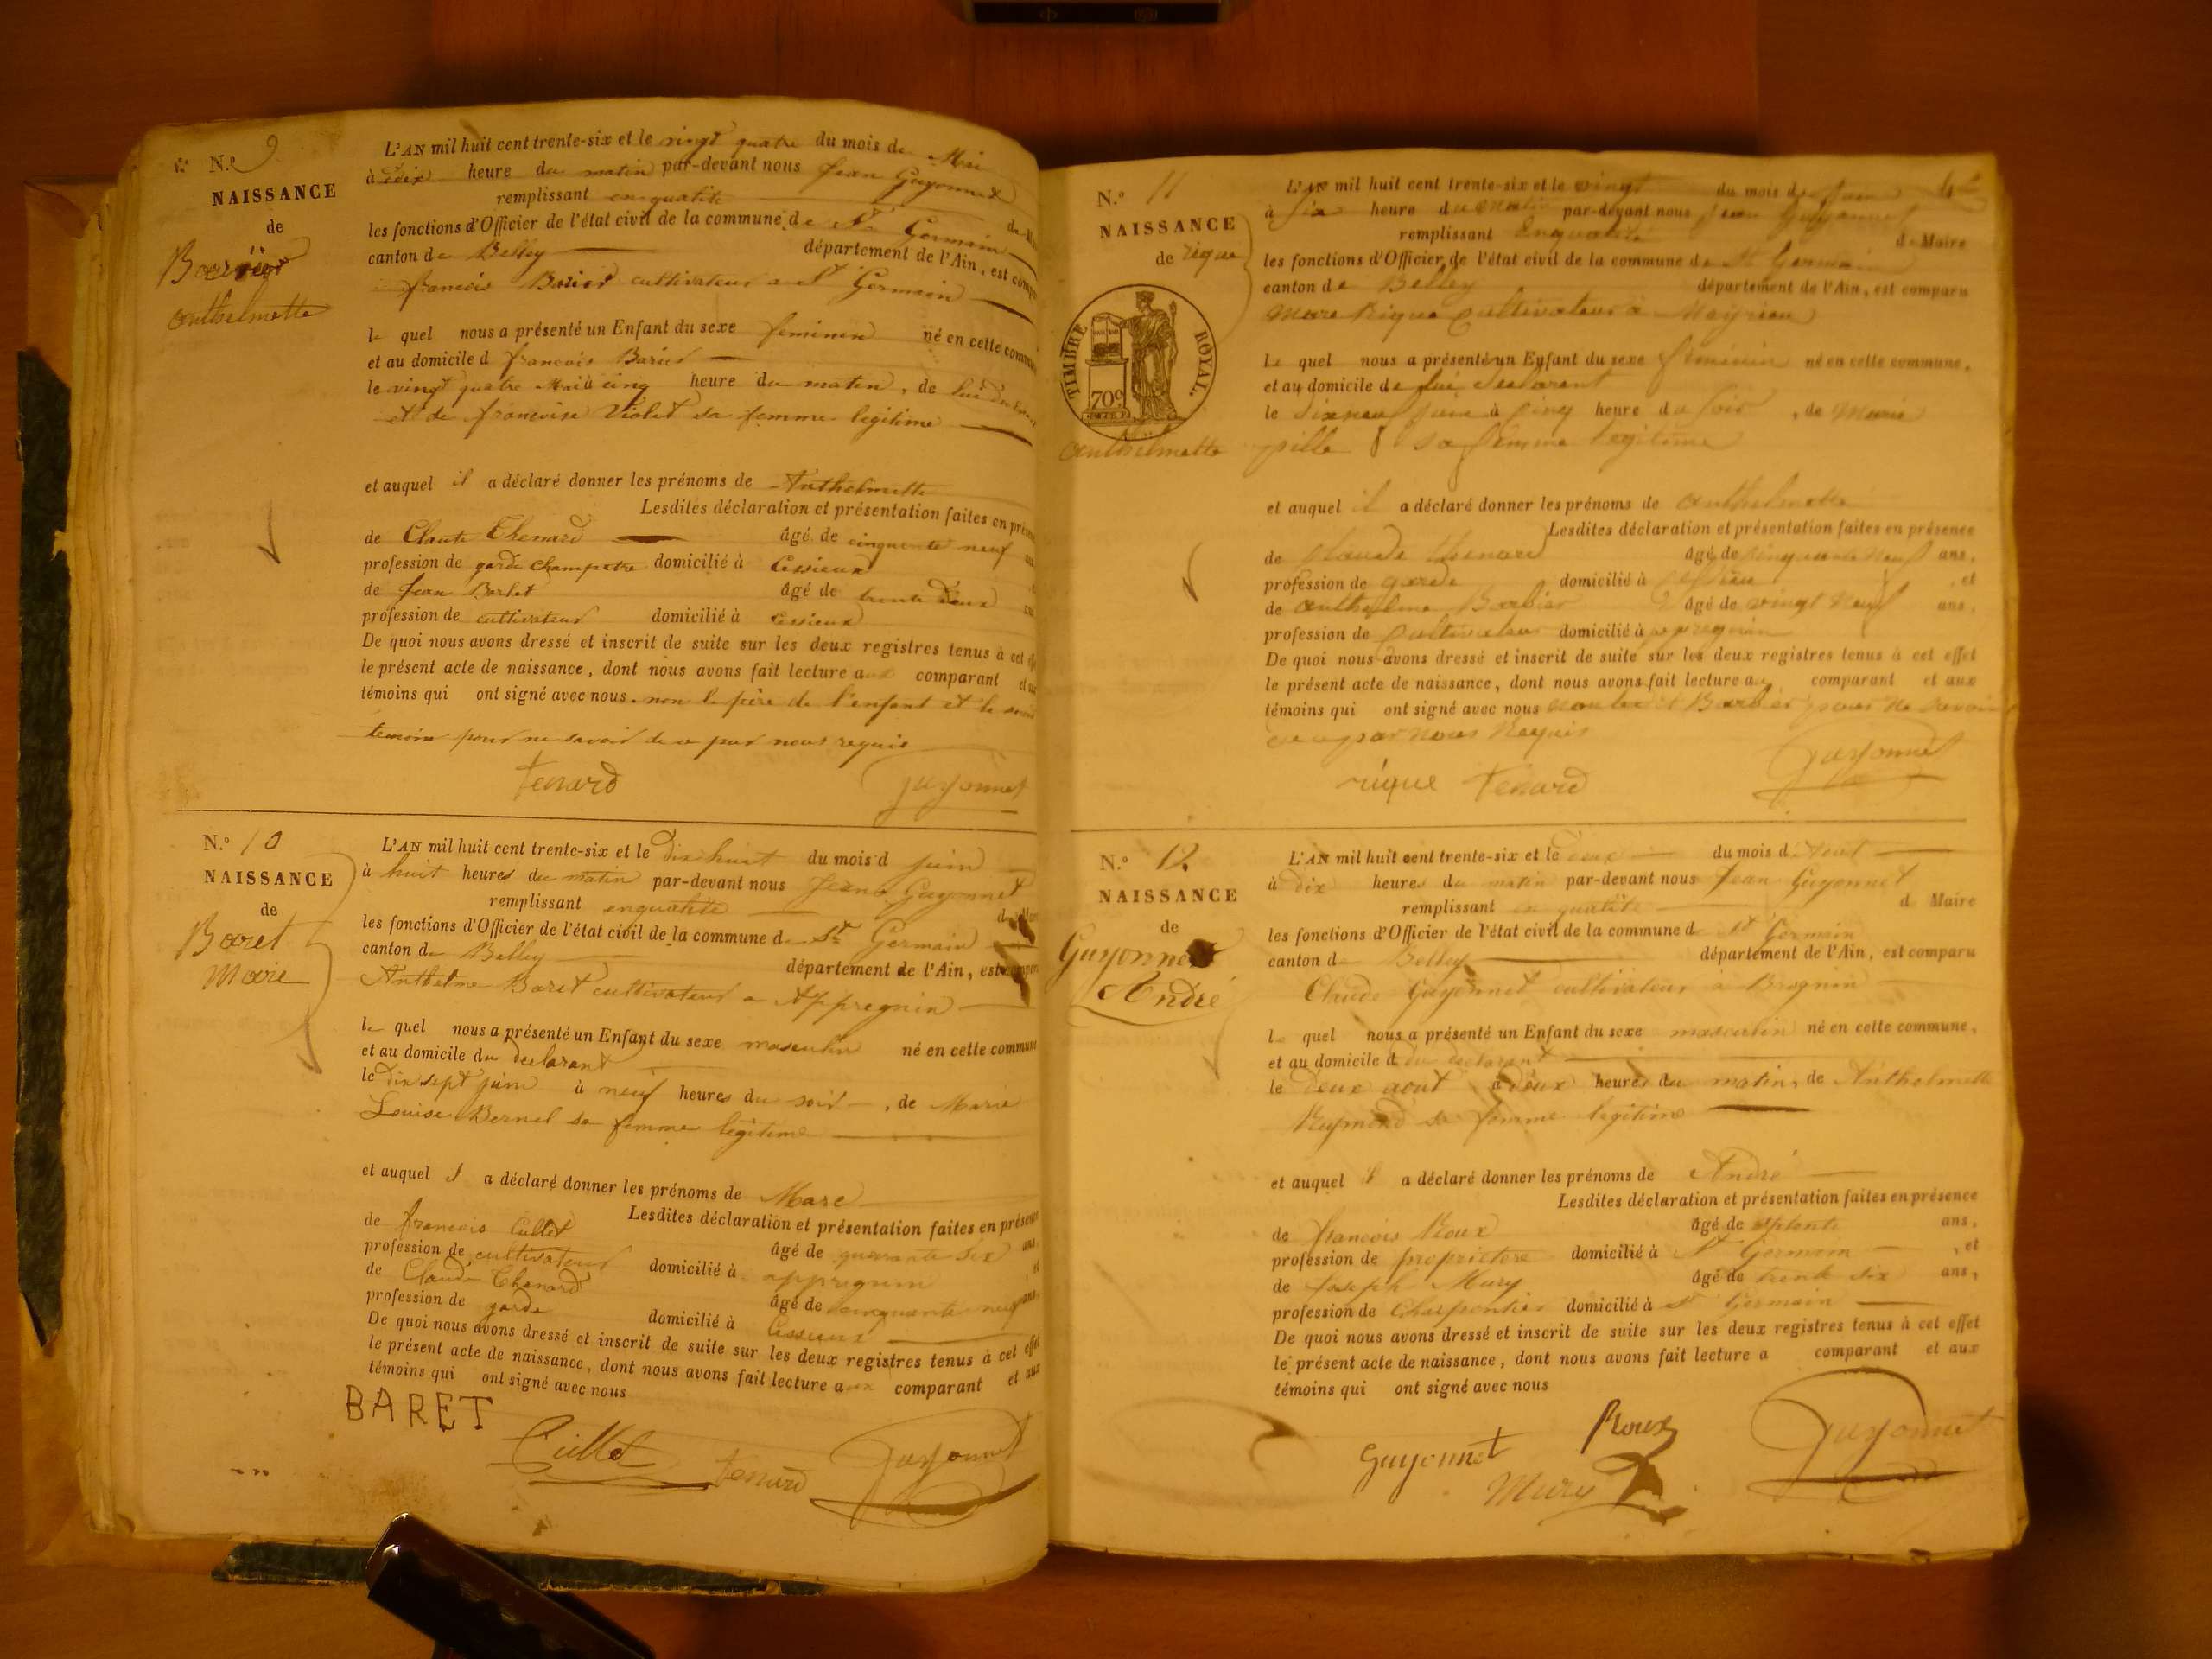 N.o 9
NAISSANCE
de
Barrier
Anthelmette
L'AN mil huit cent trente-six et le vingt quatre du mois de Mai
à dix heure du matin par-devant nous Jean Guyonnet
remplissant en qualité de
les fonctions d'Officier de l'état civil de la commune de St Germain
canton de Belley département de l'Ain, est
françois Barier cultivateur a St Germain
le quel nous a présenté un Enfant du sexe feminin né en cette
et au domicile d françois Barier
le vingt quatre Mai à cinq heure du matin, de lui
et de françoise Violet sa femme legitime
et auquel il a déclaré donner les prénoms de Anthelmette
Lesdites déclaration et présentation faites en
de Claude Thenard âgé de cinquante neuf
profession de garde champetre domicilié à Cessieux
de Jean Barlet âgé de trente deux
profession de cultivateur domicilié à Cessieux
De quoi nous avons dressé et inscrit de suite sur les deux registres tenus à cet
le présent acte de naissance, dont nous avons fait lecture aux comparant
témoins qui ont signé avec nous. non le père de l'enfant et le
temoin pour ne savoir de ce par nous requis
Tenard Guyonnet
N.o 10
NAISSANCE
de
Baret
Marc
L'AN mil huit cent trente-six et le Dix huit du mois d juin
à huit heures du matin par-devant nous Jean Guyonnet
remplissant en qualité
les fonctions d'Officier de l'état civil de la commune de St Germain
canton de Belley département de l'Ain, est
Anthelme Baret cultivateur a Appregnin
le quel nous a présenté un Enfant du sexe masculin né en cette commune
et au domicile du declarant
le Dix sept juin à neuf heures du soir, de Marie
Louise Bernel sa femme légitime
et auquel il a déclaré donner les prénoms de Marc
Lesdites déclaration et présentation faites en
de françois Cullet âgé de quarante six ans,
profession de cultivateur domicilié à appregnin et
de Claude Thenard âgé de cinquante neuf ans,
profession de garde domicilié à Cessieux
De quoi nous avons dressé et inscrit de suite sur les deux registres tenus à cet effet
le présent acte de naissance, dont nous avons fait lecture aux comparant et aux
témoins qui ont signé avec nous
BARET
Cullet Tenard Guyonnet
N.o 11
NAISSANCE
de rique
TIMBRE ROYAL.
70c
Anthelmette
L'AN mil huit cent trente-six et le vingt du mois de Juin
à six heure du matin par-devant nous Jean Guyonnet
remplissant en qualité de Maire
les fonctions d'Officier de l'état civil de la commune de St Germain
canton de Belley département de l'Ain, est comparu
Marc Rique cultivateur à Meyrieu
Le quel nous a présenté un Enfant du sexe féminin né en cette commune,
et au domicile de lui declarant
le dixneuf juin à cinq heure du soir, de Marie
pille sa femme legitime
et auquel il a déclaré donner les prénoms de Anthelmette
Lesdites déclaration et présentation faites en présence
de Claude thenard âgé de cinquante neuf ans,
profession de garde domicilié à , et
de Anthelme Barbier âgé de vingt neuf ans,
profession de Cultivateur domicilié à appregnin
De quoi nous avons dressé et inscrit de suite sur les deux registres tenus à cet effet
le présent acte de naissance, dont nous avons fait lecture au comparant et aux
témoins qui ont signé avec nous non led it Barbier pour ne savoir
de ce par nous Requis
rique Tenard Guyonnet
N.o 12
NAISSANCE
de
Guyonnet
André
L'AN mil huit cent trente-six et le deux du mois d'Aout
à dix heures du matin par-devant nous Jean Guyonnet
remplissant en qualité d Maire
les fonctions d'Officier de l'état civil de la commune d St Germain
canton de Belley département de l'Ain, est comparu
Claude Guyonnet cultivateur a Brognin
le quel nous a présenté un Enfant du sexe masculin né en cette commune,
et au domicile d du declarant
le deux aout à deux heures du matin, de Anthelmette
Reymond sa femme legitime
et auquel il a déclaré donner les prénoms de André
Lesdites déclaration et présentation faites en présence
de françois Roux âgé de septente ans,
profession de proprietere domicilié à St Germain , et
de Joseph Mury âgé de trente six ans,
profession de Charpentier domicilié à St Germain
De quoi nous avons dressé et inscrit de suite sur les deux registres tenus à cet effet
le présent acte de naissance, dont nous avons fait lecture a comparant et aux
témoins qui ont signé avec nous
Guyonnet Roux Guyonnet
Mury